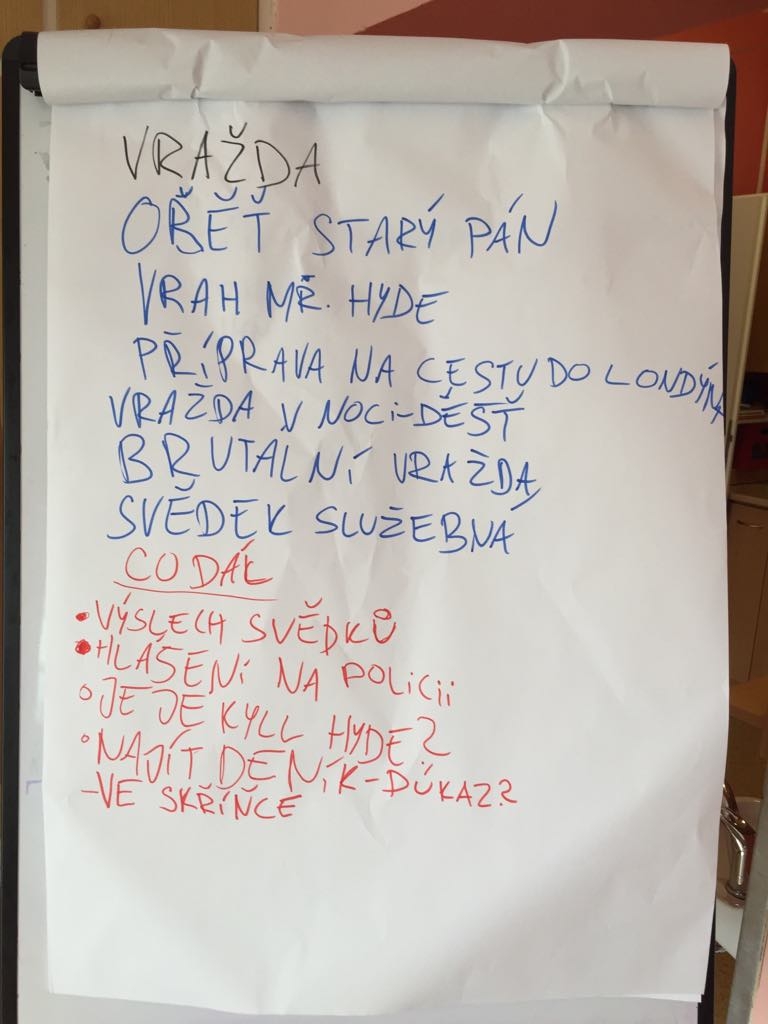 VRAŽDA
OBĚŤ STARÝ PÁN
VRAH MŘ. HYDE
PŘÍPRAVA NA CESTU DO LONDÝNA
VRAŽDA V NOCI-DÉŠŤ
BRUTALNÍ VRAŽDA
SVĚDEK SLUŽEBNÁ
CO DÁL
• VÝSLECH SVĚDKŮ
• HLÁŠENÍ NA POLICII
• JE JE KYLL HYDE?
• NAJÍT DENÍK-DŮKAZ?
-VE SKŘÍŇCE